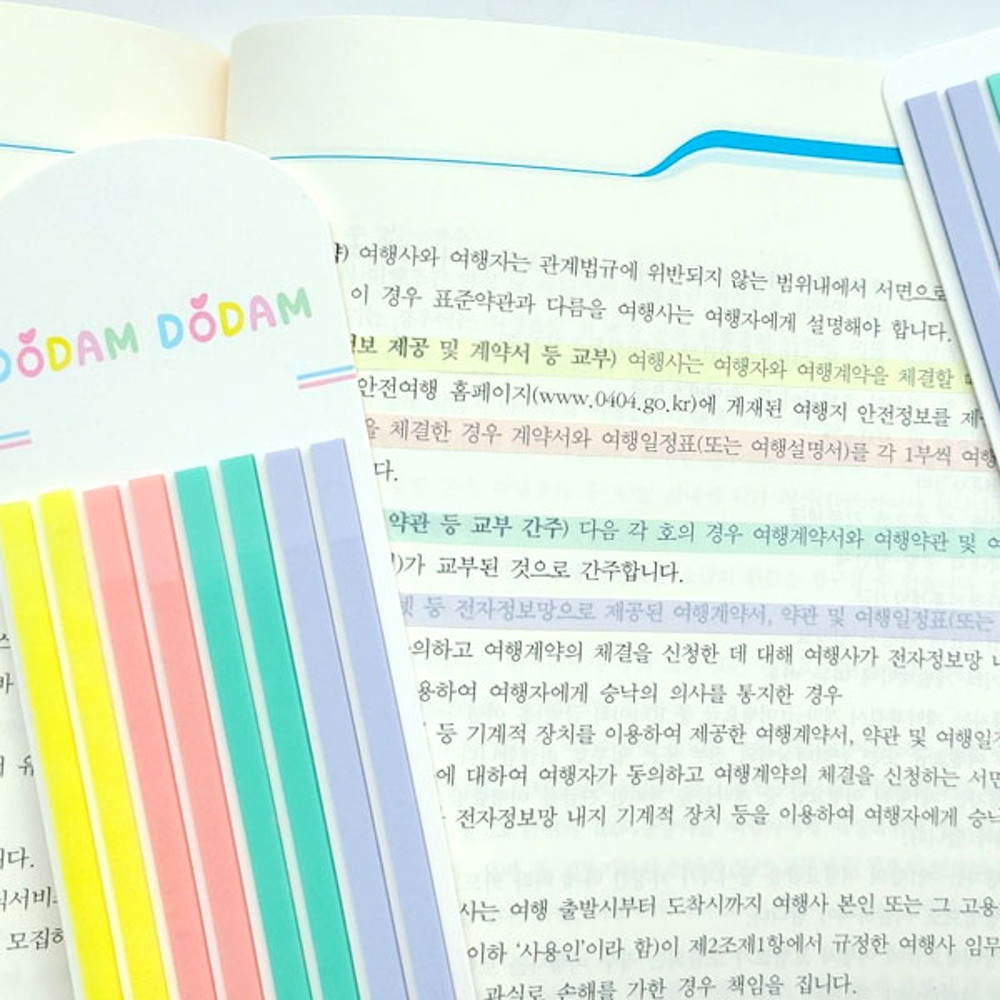 DODAM DODAM
여행사와 여행자는 관계법규에 위반되지 않는 범위내에서 서면으로
이 경우 표준약관과 다름을 여행사는 여행자에게 설명해야 합니다.
제공 및 계약서 등 교부) 여행사는 여행자와 여행계약을 체결할
안전여행 홈페이지(www.0404.go.kr)에 게재된 여행지 안전정보를
을 체결한 경우 계약서와 여행일정표(또는 여행설명서)를 각 1부씩
다.
약관 등 교부 간주) 다음 각 호의 경우 여행계약서와 여행약관 및
)가 교부된 것으로 간주합니다.
등 전자정보망으로 제공된 여행계약서, 약관 및 여행일정표(또는
의하고 여행계약의 체결을 신청한 데 대해 여행사가 전자정보망
용하여 여행자에게 승낙의 의사를 통지한 경우
등 기계적 장치를 이용하여 제공한 여행계약서, 약관 및
에 대하여 여행자가 동의하고 여행계약의 체결을 신청하는
전자정보망 내지 기계적 장치 등을 이용하여 여행자에게
시는 여행 출발시부터 도착시까지 여행사 본인 또는 그
이하 ‘사용인’이라 함)이 제2조제1항에서 규정한 여행사
과실로 손해를 가한 경우 책임을 집니다.